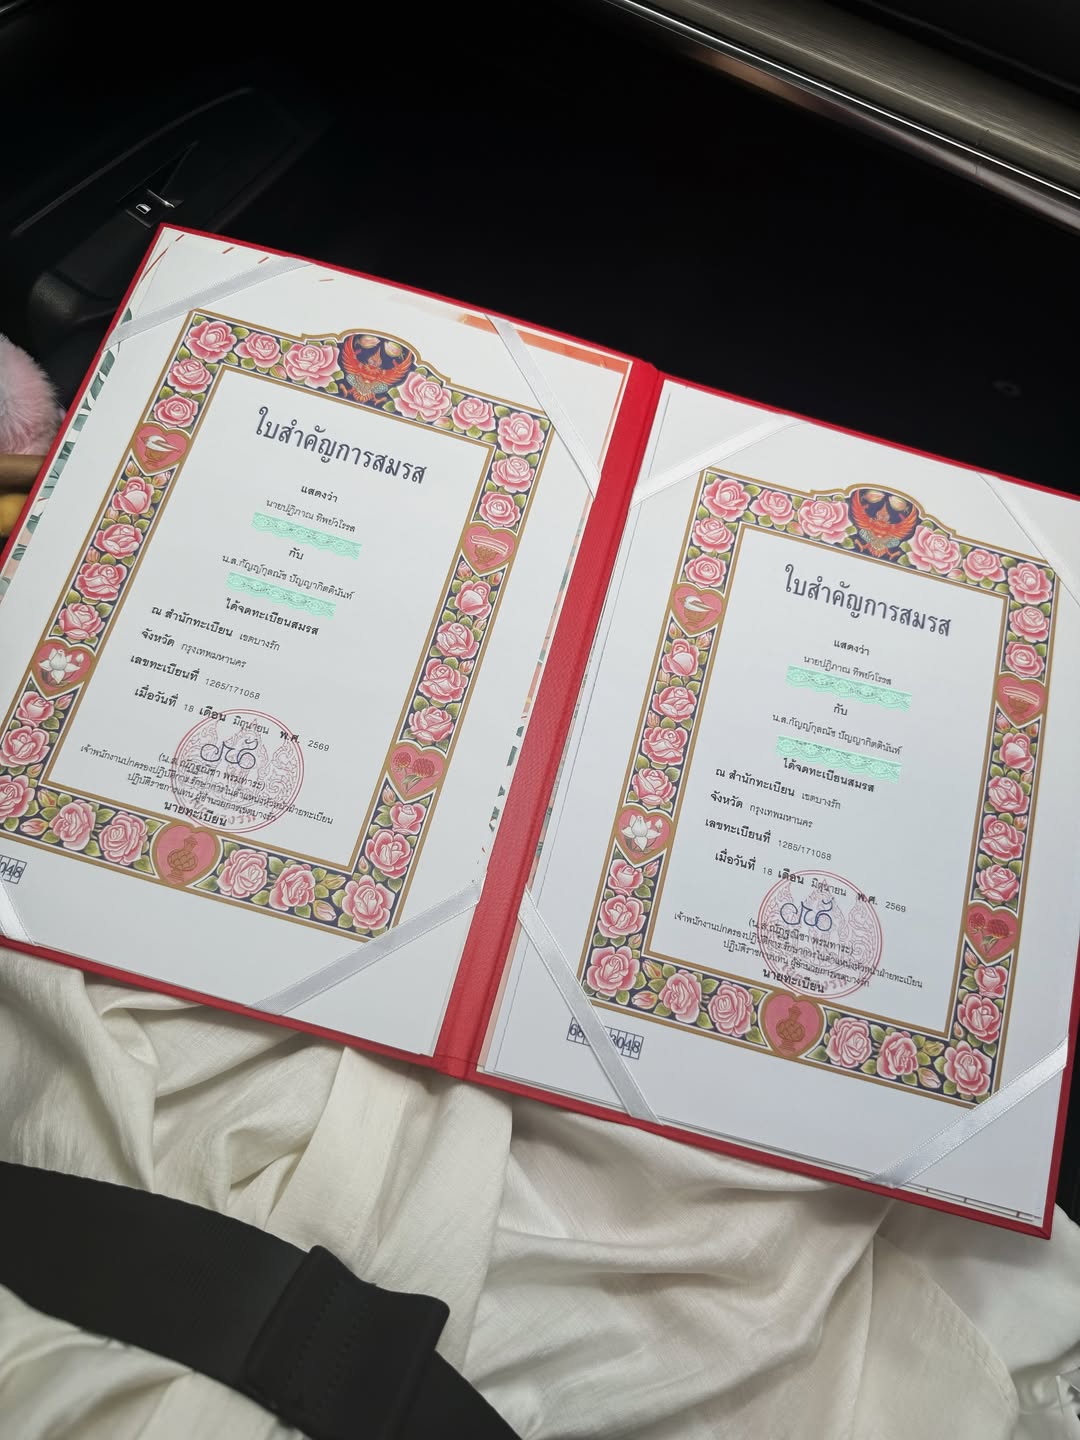 ใบสำคัญการสมรส
แสดงว่า
นายปฏิภาณ ทิพย์วโรรส
กับ
น.ส.กัญญ์กุลณัช ปัญญากิตตินันท์
ได้จดทะเบียนสมรส
ณ สำนักทะเบียน เขตบางรัก
จังหวัด กรุงเทพมหานคร
เลขทะเบียนที่ 1265/171058
เมื่อวันที่ 18 เดือน มิถุนายน พ.ศ. 2569
(น.ส.ณัฏฐณิชา พรมทาระ)
เจ้าพนักงานปกครองปฏิบัติการ รักษาการในตำแหน่งหัวหน้าฝ่ายทะเบียน
ปฏิบัติราชการแทน ผู้อำนวยการเขตบางรัก
นายทะเบียน
048
ใบสำคัญการสมรส
แสดงว่า
นายปฏิภาณ ทิพย์วโรรส
กับ
น.ส.กัญญ์กุลณัช ปัญญากิตตินันท์
ได้จดทะเบียนสมรส
ณ สำนักทะเบียน เขตบางรัก
จังหวัด กรุงเทพมหานคร
เลขทะเบียนที่ 1265/171058
เมื่อวันที่ 18 เดือน มิถุนายน พ.ศ. 2569
(น.ส.ณัฏฐณิชา พรมทาระ)
เจ้าพนักงานปกครองปฏิบัติการ รักษาการในตำแหน่งหัวหน้าฝ่ายทะเบียน
ปฏิบัติราชการแทน ผู้อำนวยการเขตบางรัก
นายทะเบียน